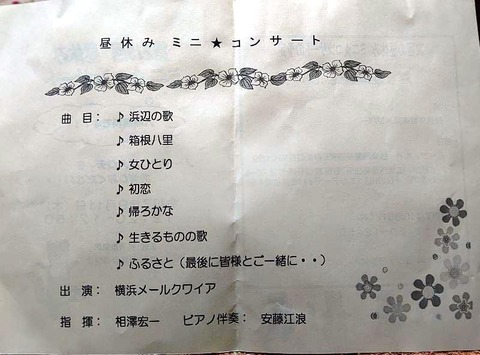 昼休み ミニ★コンサート
曲 目： ♪浜辺の歌
♪箱根八里
♪女ひとり
♪初恋
♪帰ろかな
♪生きるものの歌
♪ふるさと（最後に皆様とご一緒に・・）
出 演： 横浜メールクワイア
指 揮： 相澤宏一 ピアノ伴奏： 安藤江浪